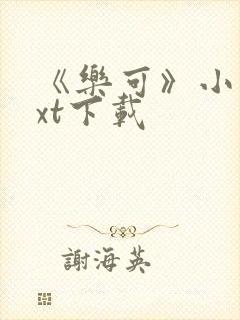 《樂可》小
xt下載
謝海英